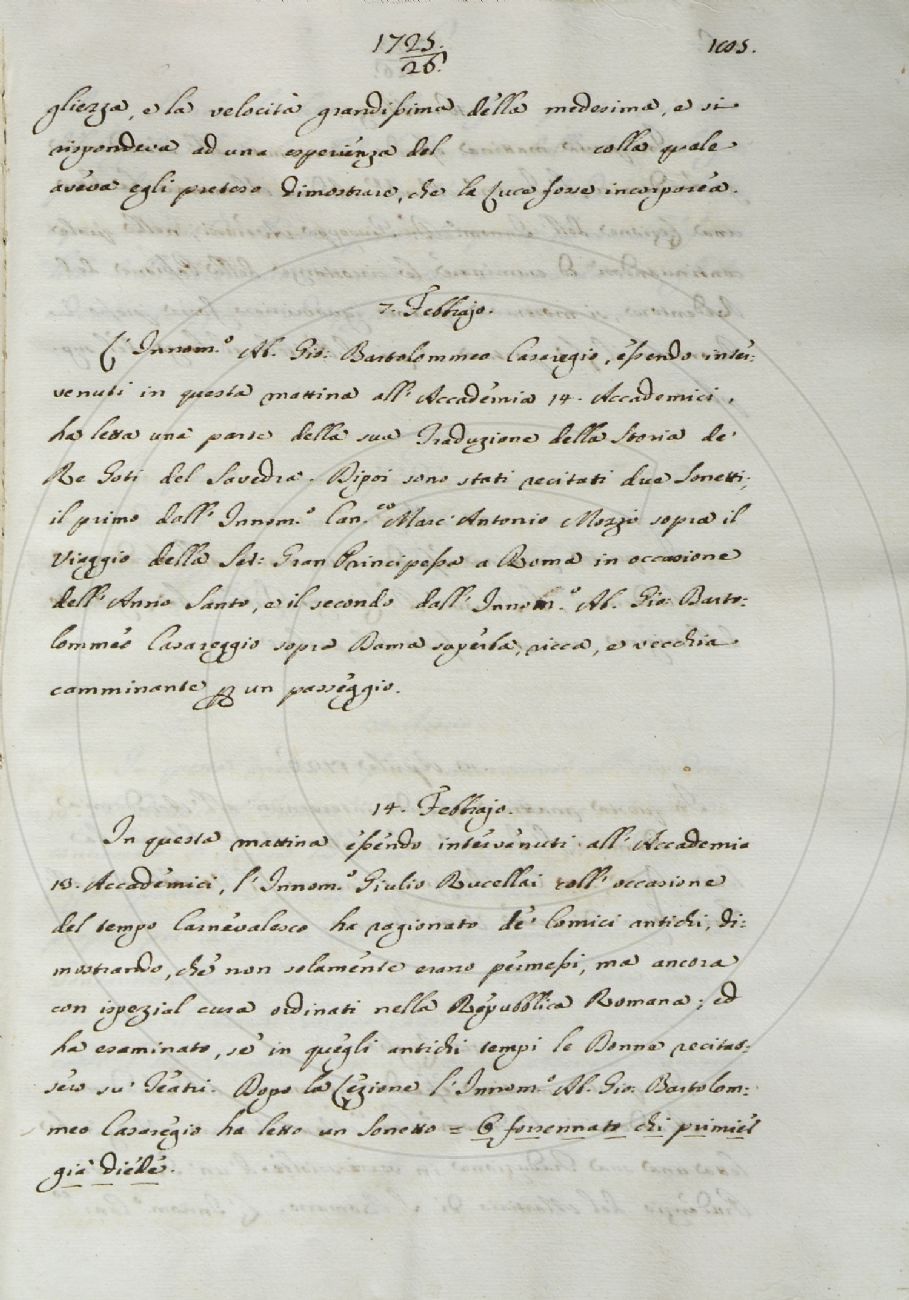 1725.
26.
1005.
gliezza, e la velocità grandissima della medesima, e si
rispondeva ad una esperienza del colla quale
aveva egli preteso dimostrare, che la Luce fosse incorporea.
7. Febbrajo.
L'Innom.º Ab. Gio: Bartolommeo Casaregio, essendo inter:
venuti in questa mattina all'Accademia 14. Accademici,
ha letta una parte della sua Traduzione della Storia de'
Re Goti del Savedra. Dipoi sono stati recitati due Sonetti;
il primo dall'Innom.º Can.co Marc'Antonio Mozzi sopra il
Viaggio della Ser: Gran Principessa a Roma in occasione
dell'Anno Santo, e il secondo dall'Innom.º Ab. Gio: Barto:
lommeo Casareggio sopra Dama superba, ricca, e vecchia
camminante un passeggio.
14. Febbrajo.
In questa mattina essendo intervenuti all'Accademia
18. Accademici, l'Innom.º Giulio Rucellai coll'occasione
del tempo Carnevalesco ha ragionato de' Comici antichi, di:
mostrando, che non solamente erano permessi, ma ancora
con ispezial cura ordinati nella Repubblica Romana; ed
ha esaminato, se in quegli antichi tempi le Donne recitas:
sero su' Teatri. Dopo la Lezione l'Innom.º Ab. Gio: Bartolom:
meo Casaregio ha letto un Sonetto = forsennato chi primier
già diede.